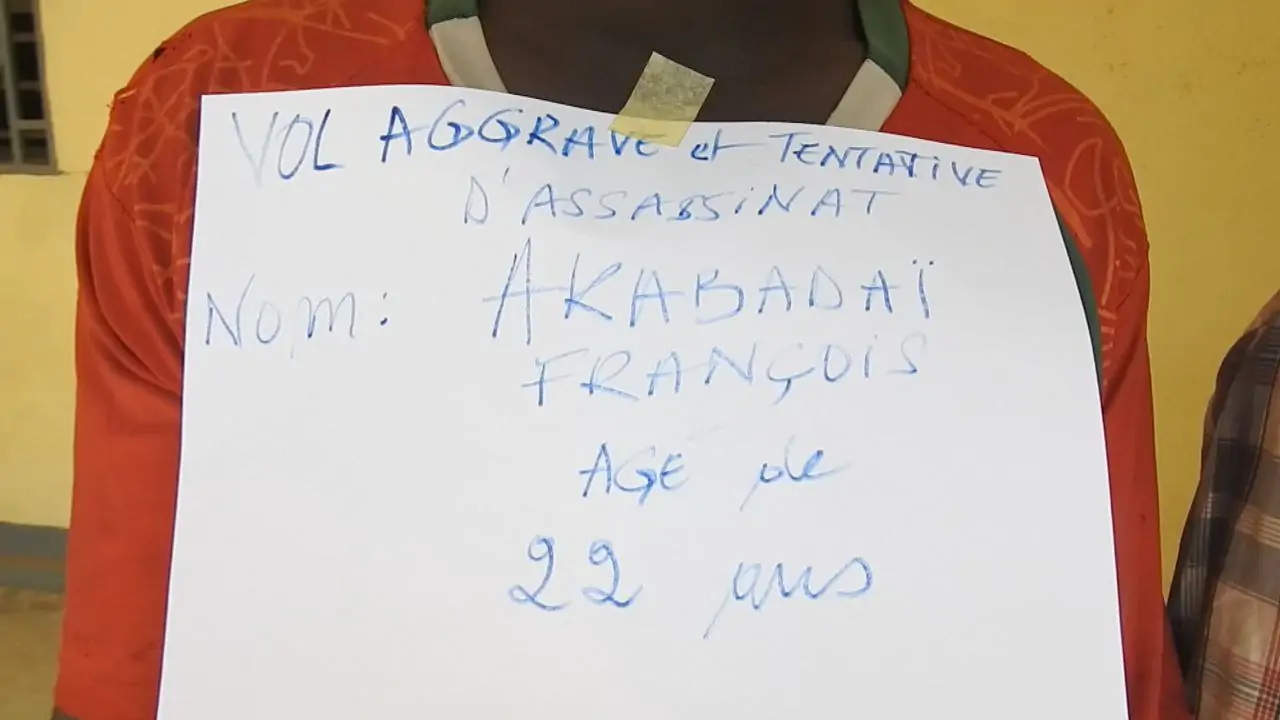 VOL AGGRAVE et TENTATIVE
D'ASSASSINAT
Nom: AKABADAÏ
FRANÇOIS
AGE de
22 ans